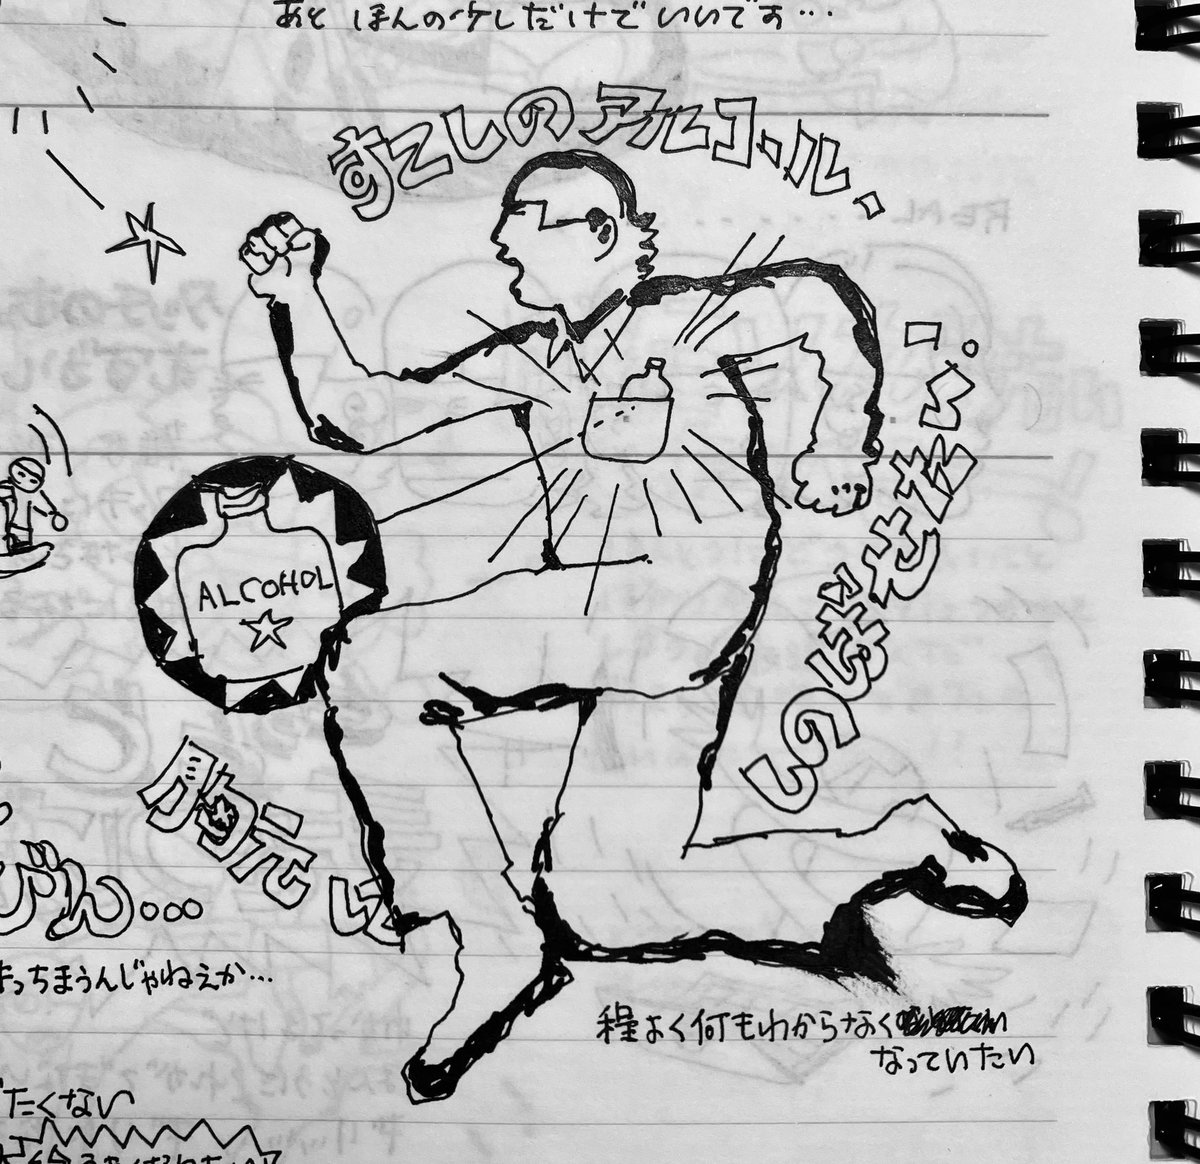 あと ほんの少しだけでいいです…
すこしのアルコール.
ALCOHOL
胸元に
しのばせた…
びん…
っちまうんじゃねえか…
程よく何もわからなく
なっていたい
たくない